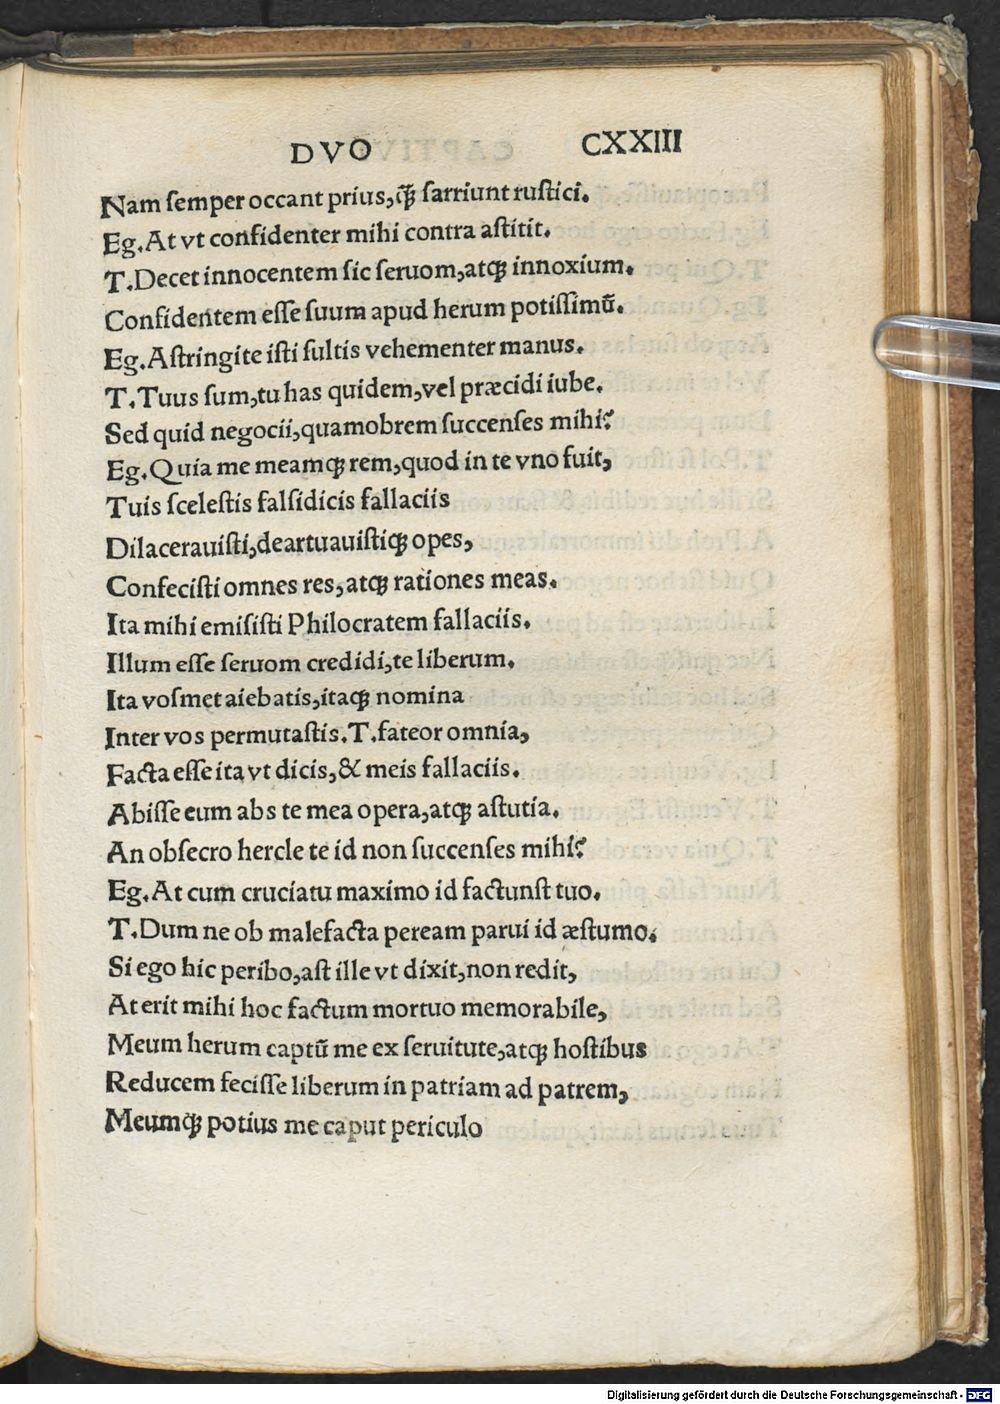 DVO CXXIII
Nam ſemper occant prius,ꝙ̃ ſarriunt ruſtici.
Eg.At vt confidenter mihi contra aſtitit.
T.Decet innocentem ſic ſeruom,atqꝫ innoxium.
Confidentem eſſe ſuum apud herum potiſſimū.
Eg.Aſtringite iſti ſultis vehementer manus.
T.Tuus ſum,tu has quidem,vel præcidi iube.
Sed quid negocii,quamobrem ſuccenſes mihi?
Eg.Quia me meamqꝫ rem,quod in te vno fuit,
Tuis ſceleſtis falſidicis fallaciis
Dilaceraviſti,deartuauiſtiqꝫ opes,
Confeciſti omnes res,atqꝫ rationes meas.
Ita mihi emiſiſti Philocratem fallaciis.
Illum eſſe ſeruom credidi,te liberum.
Ita voſmet aiebatis,itaqꝫ nomina
Inter vos permutaſtis.T.fateor omnia,
Facta eſſe ita vt dicis,& meis fallaciis.
Abiſſe eum abs te mea opera,atqꝫ aſtutia.
An obſecro hercle te id non ſuccenſes mihi?
Eg.At cum cruciatu maximo id factunſt tuo.
T.Dum ne ob malefacta peream parui id æſtumo.
Si ego hic peribo,aſt ille vt dixit,non redit,
At erit mihi hoc factum mortuo memorabile,
Meum herum captū me ex ſeruitute,atqꝫ hoſtibus
Reducem feciſſe liberum in patriam ad patrem,
Meumqꝫ potius me caput periculo
Digitalisierung gefördert durch die Deutsche Forschungsgemeinschaft - DFG